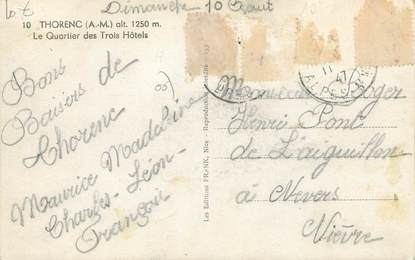 Dimanche 10 Août
10 THORENC (A.-M.) alt. 1250 m.
Le Quartier des Trois Hôtels
Bons
Baisers de
Thorenc
Maurice Madeleine
Charles-Léon-
François
Les Editions FRANK, Nice - Reproduction
11
47
Monsieur Roger
Henri Pont
de L'aiguillon
à Nevers
Nièvre